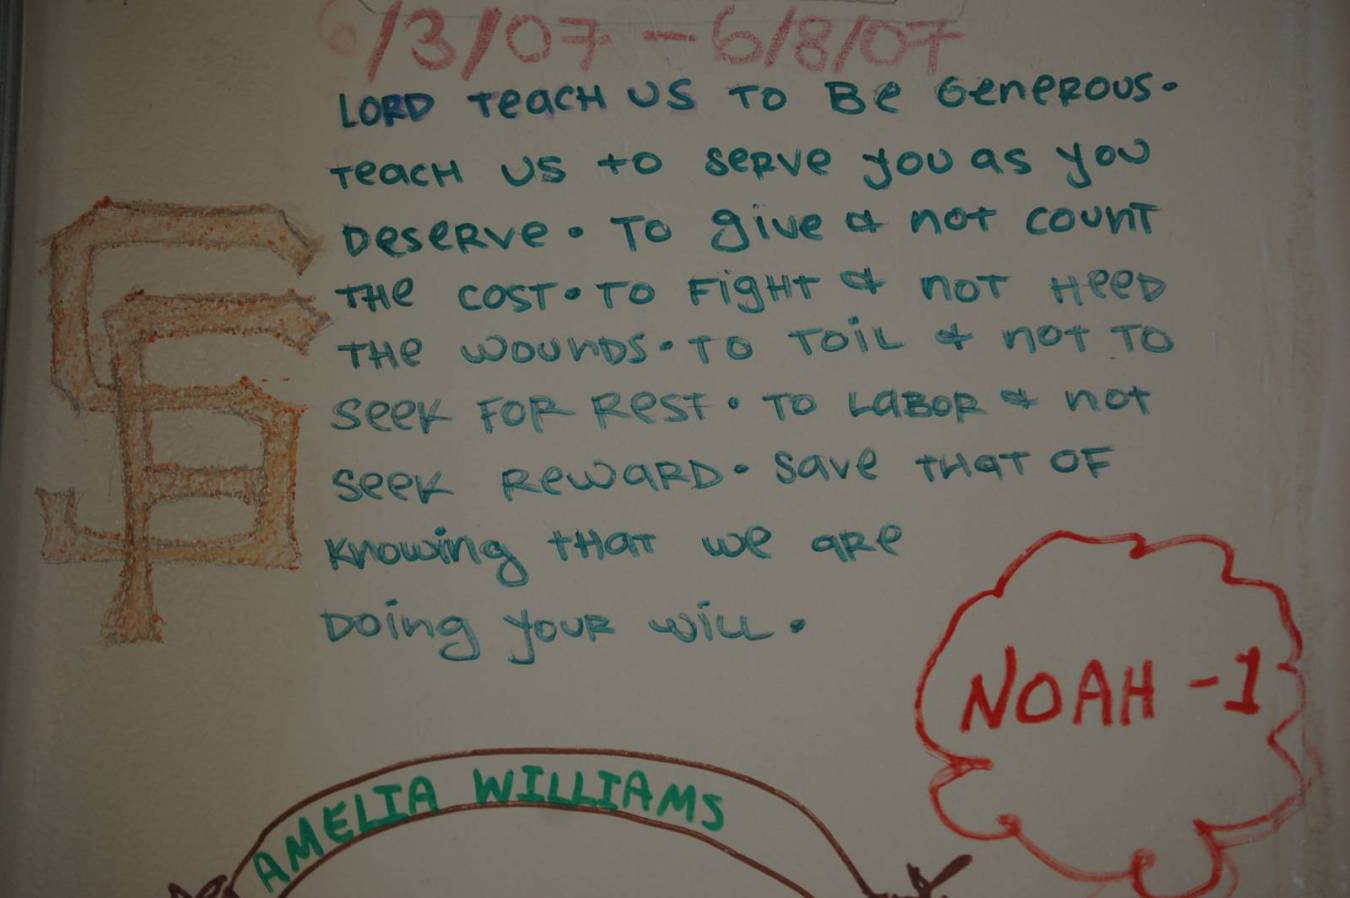 6/3/07 - 6/8/07
LORD TEACH US TO BE GENEROUS.
TEACH US TO SERVE YOU AS YOU
DESERVE. TO GIVE & NOT COUNT
THE COST. TO FIGHT & NOT HEED
THE WOUNDS. TO TOIL & NOT TO
SEEK FOR REST. TO LABOR & NOT
SEEK REWARD. SAVE THAT OF
KNOWING THAT WE ARE
DOING YOUR WILL.
SF
NOAH -1
AMELIA WILLIAMS